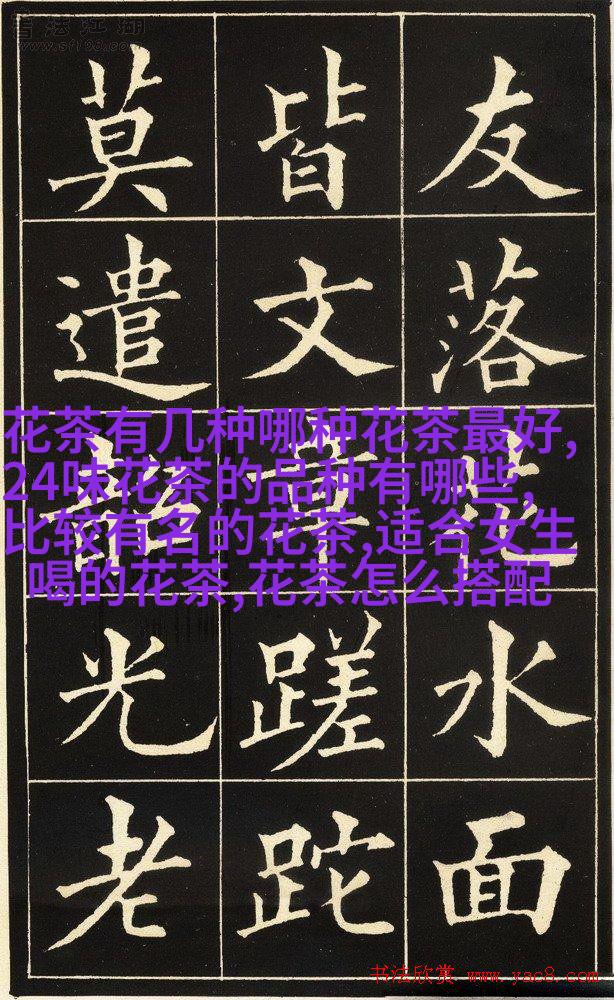 书法江湖
友落花水面
皆文章蹉跎
莫遣韶光老
花茶有几种哪种花茶最好,
24味花茶的品种有哪些,
比较有名的花茶,适合女生
喝的花茶,花茶怎么搭配
书法欣赏 www.yac8.com